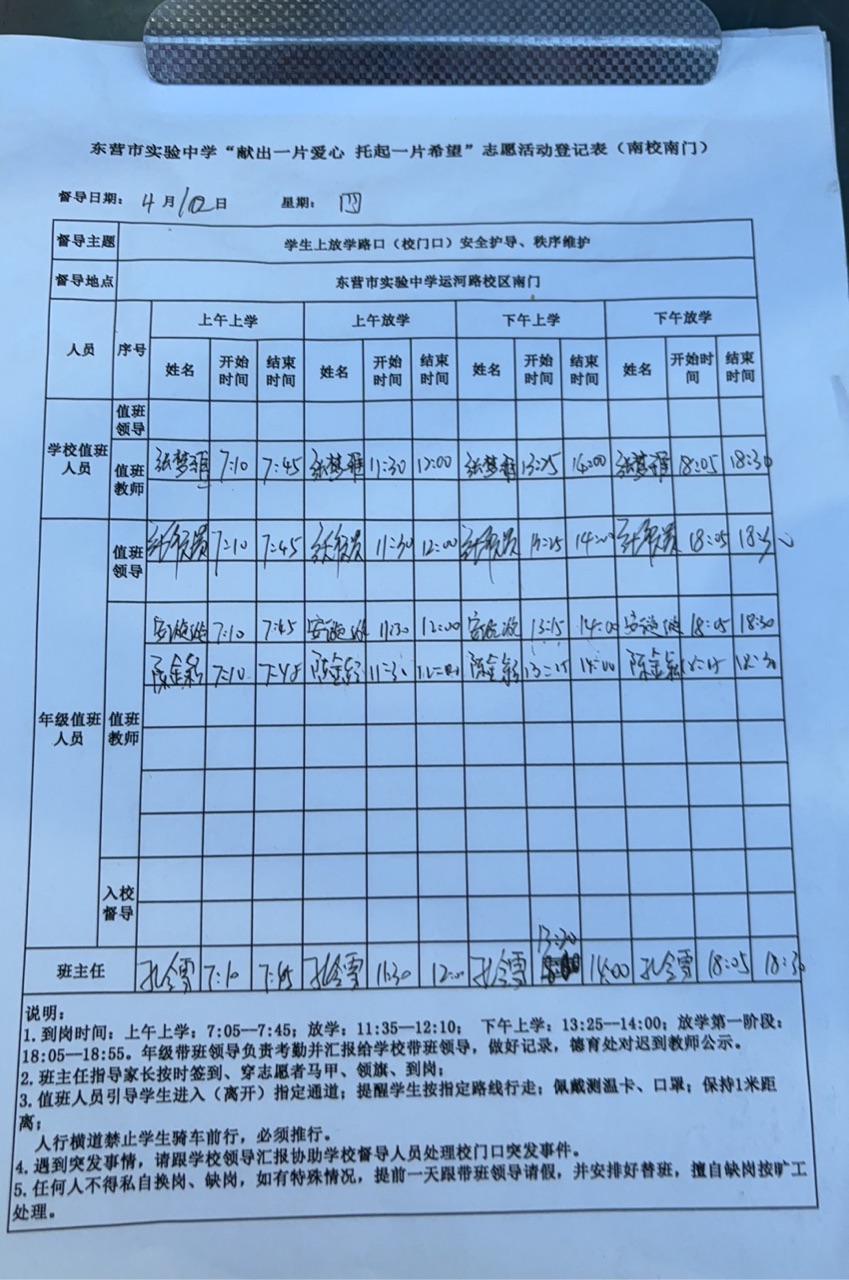 东营市实验中学“献出一片爱心 托起一片希望”志愿活动登记表（南校南门）
督导日期： 4 月 10 日 星期： 四
督导主题 学生上放学路口（校门口）安全护导、秩序维护
督导地点 东营市实验中学运河路校区南门
人员 序号 上午上学 上午放学 下午上学 下午放学
姓名 开始时间 结束时间 姓名 开始时间 结束时间 姓名 开始时间 结束时间 姓名 开始时间 结束时间
学校值班人员
值班领导
值班教师 张梦雅 7:10 7:45 张梦雅 11:30 12:00 张梦雅 13:25 14:00 张梦雅 18:05 18:30
年级值班人员
值班领导 7:10 7:45 11:30 12:00 13:25 14:00 18:05 18:30
值班教师
7:10 7:45 11:30 12:00 13:15 14:00 18:05 18:30
陈金 7:10 7:45 陈金 11:30 陈金 14:00 陈金 18:30
入校督导
班主任 孔令雪 7:10 7:45 孔令雪 11:30 12:00 孔令雪 13:30 14:00 孔令雪 18:05 18:30
说明：
1. 到岗时间：上午上学：7:05—7:45；放学：11:35—12:10； 下午上学：13:25—14:00；放学第一阶段：
18:05—18:55。年级带班领导负责考勤并汇报给学校带班领导，做好记录，德育处对迟到教师公示。
2. 班主任指导家长按时签到、穿志愿者马甲、领旗、到岗；
3. 值班人员引导学生进入（离开）指定通道；提醒学生按指定路线行走；佩戴测温卡、口罩；保持1米距
离；
人行横道禁止学生骑车前行，必须推行。
4. 遇到突发事情，请跟学校领导汇报协助学校督导人员处理校门口突发事件。
5. 任何人不得私自换岗、缺岗，如有特殊情况，提前一天跟带班领导请假，并安排好替班，擅自缺岗按旷工
处理。